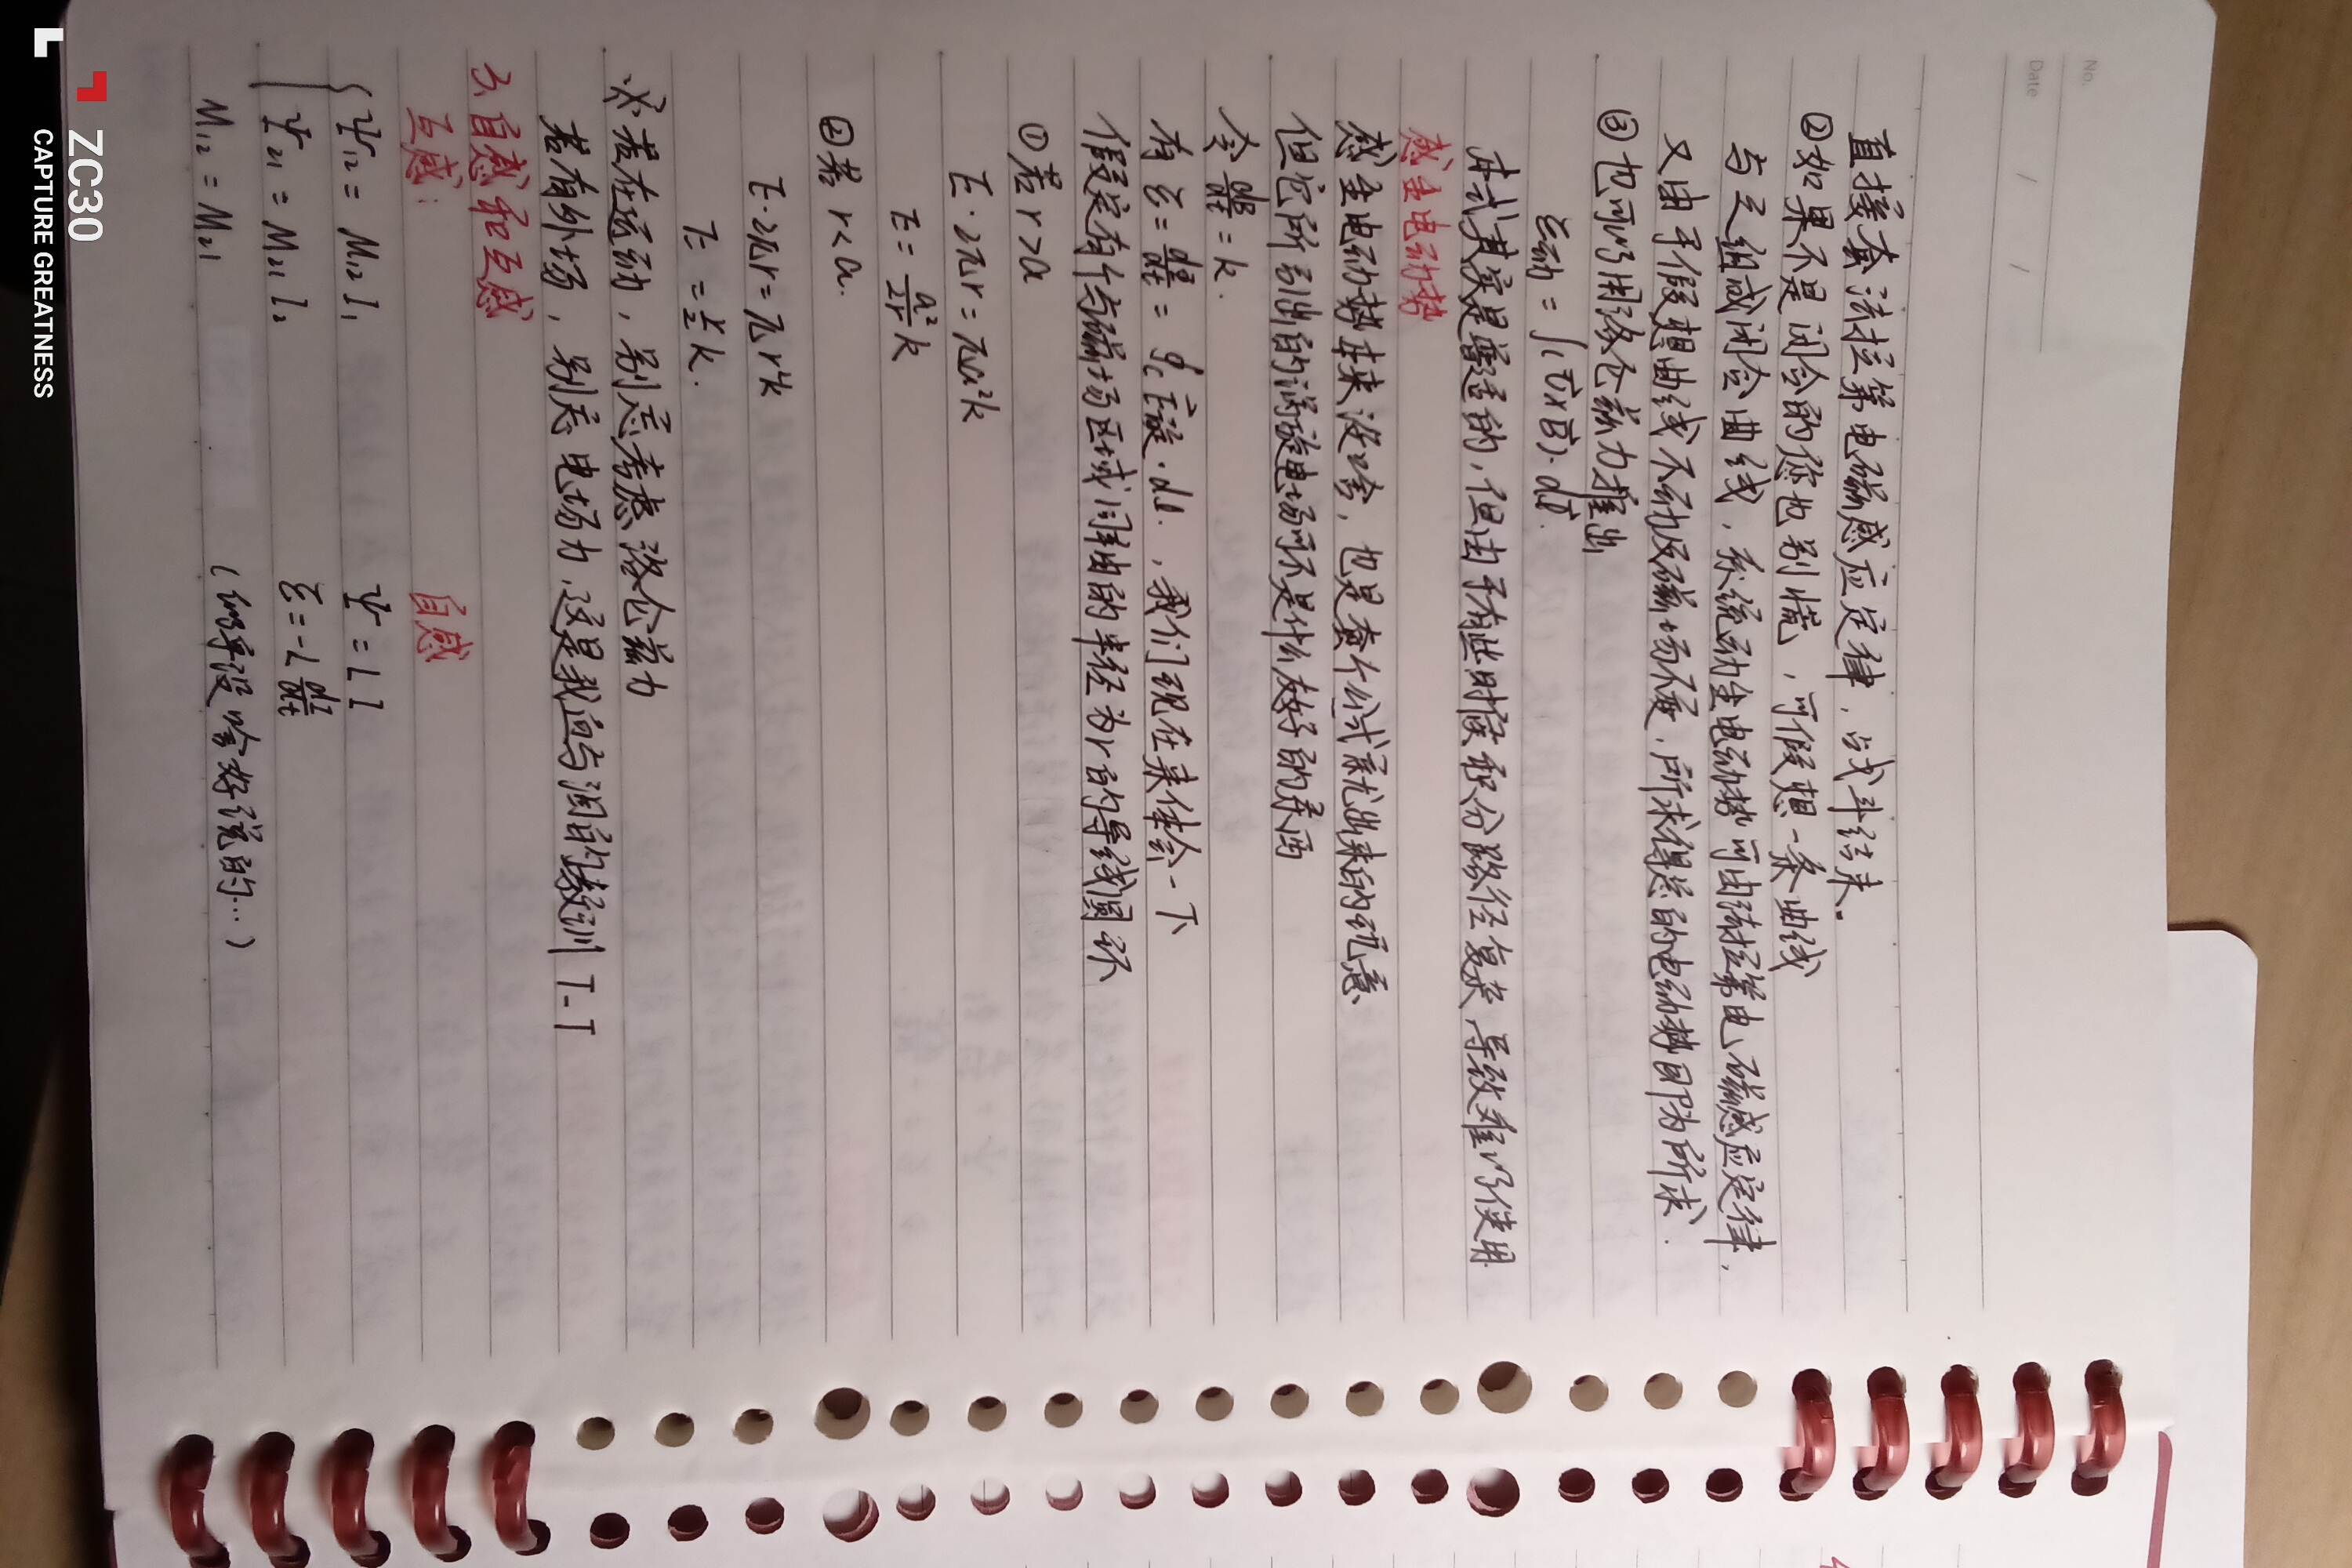 No.
Date / /
直接套法拉第电磁感应定律，战斗结束.
②如果不是闭合的您也别慌，可假想一条曲线
与之组成闭合曲线，系统动生电动势可由法拉第电磁感应定律，
又由于假想曲线不动及磁场不变，所求得总的电动势即为所求.
③也可以用洛仑兹力推出
ε动 = ∫L(v⃗×B⃗)·dl⃗.
本式其实是普适的，但由于有些时候积分路径复杂，导致难以使用
感生电动势
感生电动势本来没啥，也是套个公式就出来的玩意
但它所引出的涡旋电场可不是什么友好的东西
令 dB/dt = k.
有 ε = dΦ/dt = ∮c E⃗旋·dl.，我们现在来体会一下
假定有个与磁场区域同轴的半径为r的导线圆环
①若 r>a
E·2πr = πa²k
E = a²/2r k
②若 r<a.
E·2πr = πr²k
E = r/2 k.
※若在运动，别忘考虑洛仑兹力
若有外场，别忘电场力，这是我血与泪的教训 T-T
3、自感和互感
互感： 自感
Ψ12 = M12 I1 Ψ = LI
Ψ21 = M21 I2 ε = -L dI/dt
M12 = M21 （似乎没啥好说的…）
ZC30
CAPTURE GREATNESS